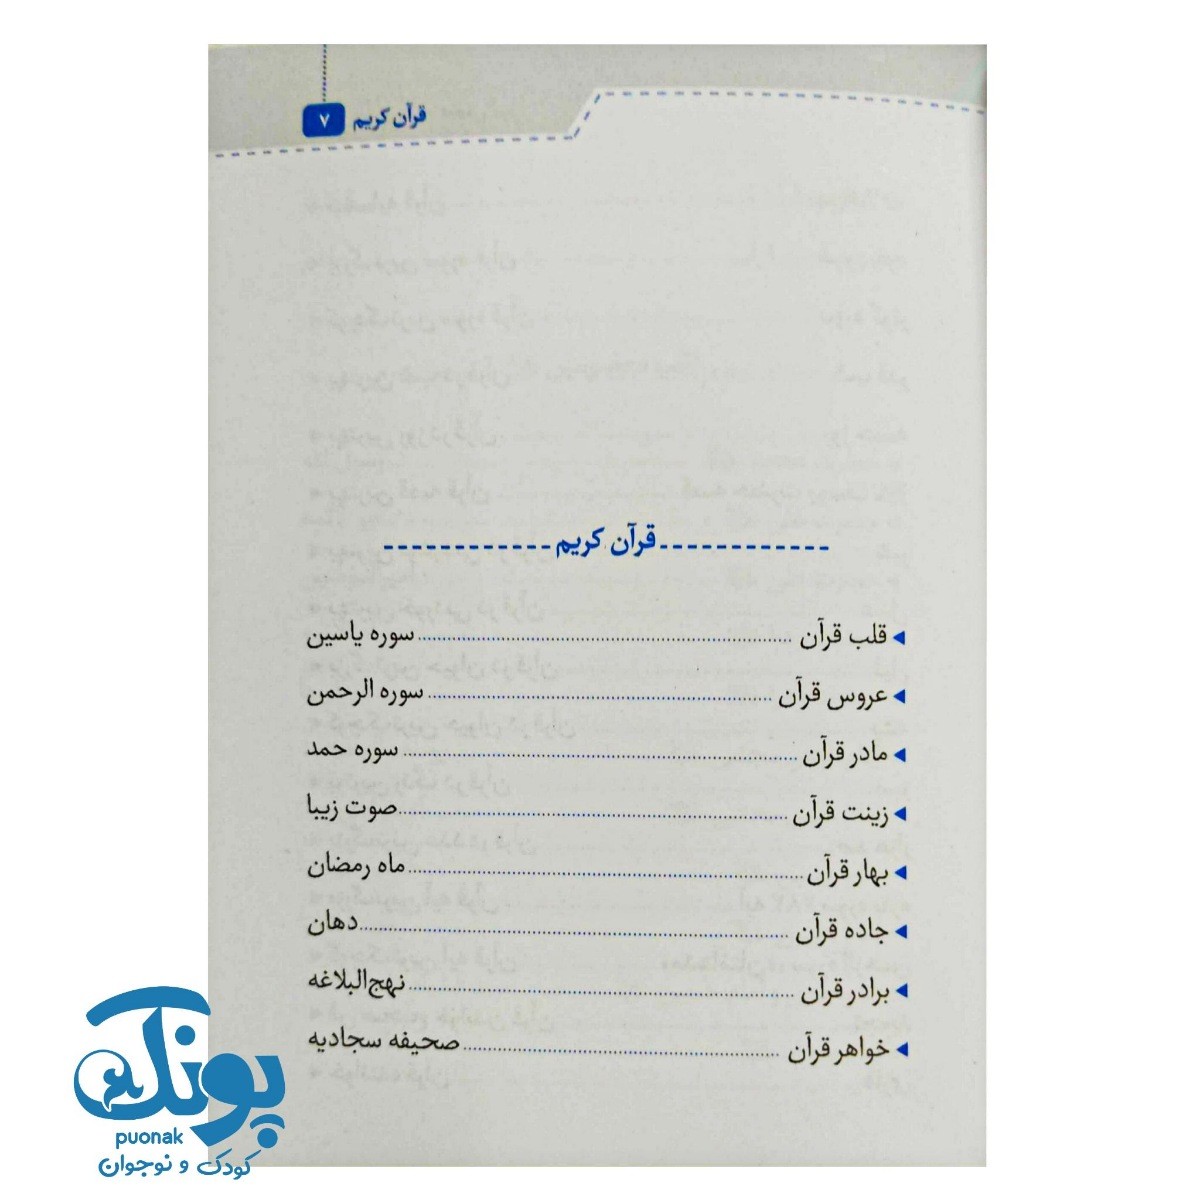 قرآن کریم ۷
قرآن کریم
◂ قلب قرآن ........ سوره یاسین
◂ عروس قرآن ........ سوره الرحمن
◂ مادر قرآن ........ سوره حمد
◂ زینت قرآن ........ صوت زیبا
◂ بهار قرآن ........ ماه رمضان
◂ جاده قرآن ........ دهان
◂ برادر قرآن ........ نهج‌البلاغه
◂ خواهر قرآن ........ صحیفه سجادیه
پونک
puonak
کودک و نوجوان